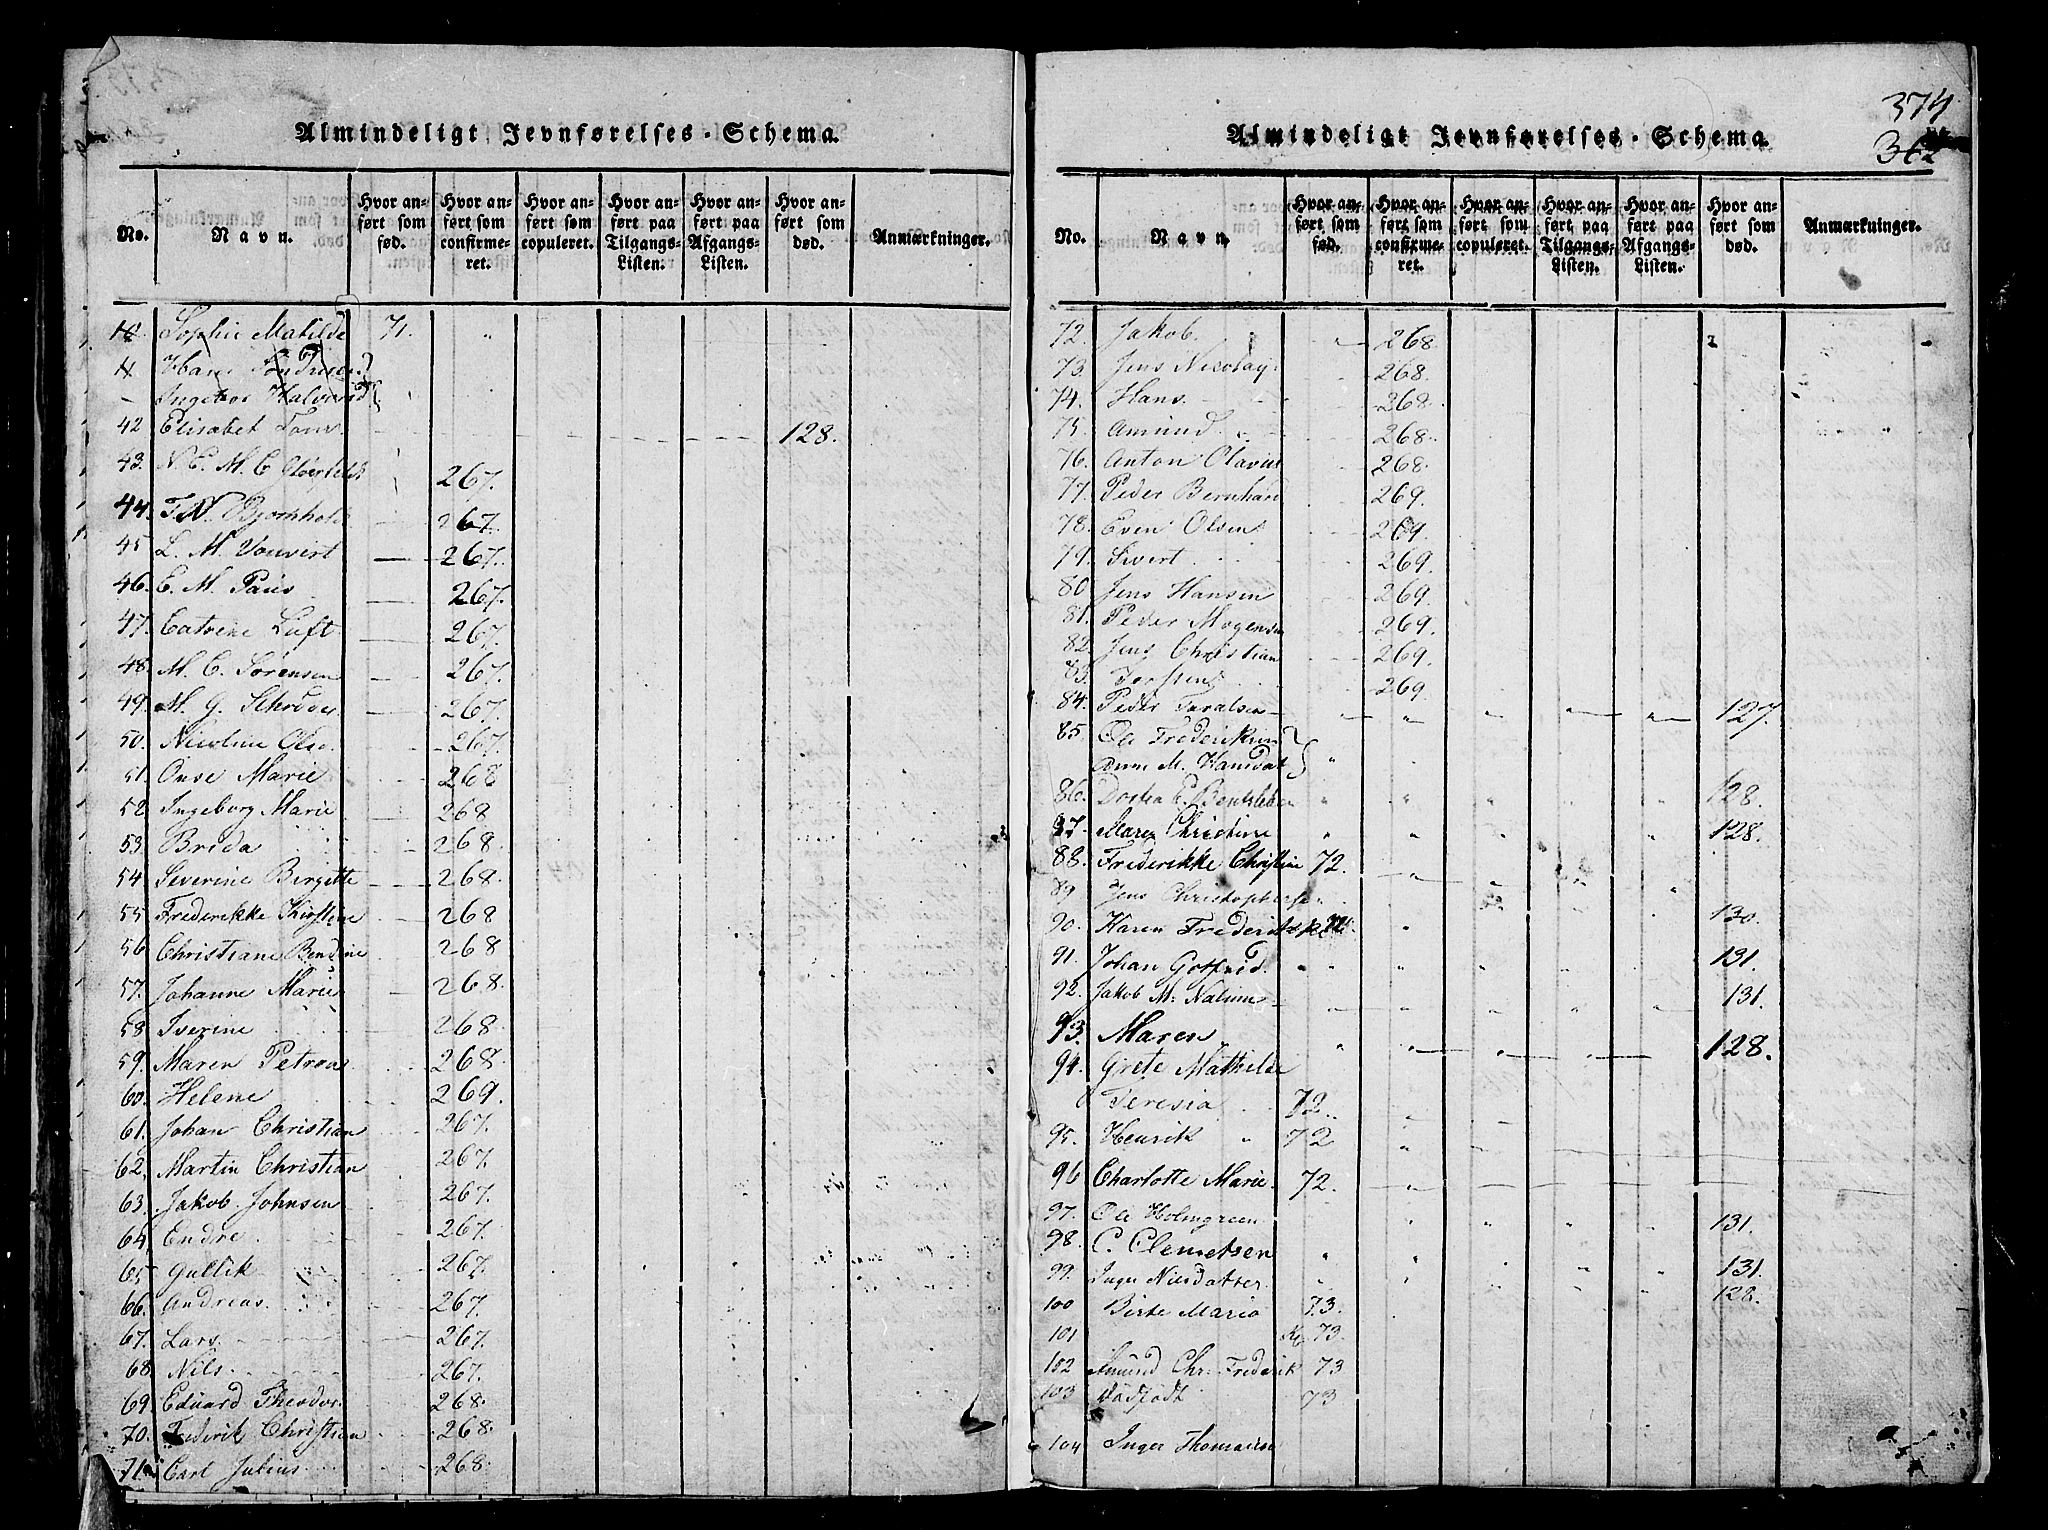 Almindeligt Jevnførelses-Schema.
No. Navn. Hvor anført som fød. Hvor anført som confirmeret. Hvor anført som copuleret. Hvor anført paa Tilgangs-Listen. Hvor anført paa Afgangs-Listen. Hvor anført som død. Anmærkninger.
Sophie Matilde 71. "
Hans
Ingebor Halvorsd
42 Elisabet 128.
43. N. C. M. C. 267.
44. 267.
45 L. M. 267.
46. C. M. Paus 267.
47. Catrine Luft 267.
48. M. C. Sørensen 267.
49. M. G. Schrøder 267.
50. Nicoline Olsd. 267.
51. Onse Marie 268
52. Ingeborg Marie 268
53. Breda 268.
54 Severine Birgitte 268.
55 Frederikke Kirstine 268
56 Christiane Bendine 268
57. Johanne Marie 268.
58 Iverine 268.
59. Maren Petrea 268.
60. Helene 269.
61. Johan Christian 267.
62. Martin Christian 267.
63. Jakob Johnsen 267.
64. Endre 267.
65 Gullik 267.
66. Andreas 267.
67. Lars 267.
68 Nils 267.
69. Eduard Theodor 268.
70. Frederik Christian 268.
71. Carl Julius 268.
374
362
Almindeligt Jevnførelses-Schema.
No. Navn. Hvor anført som fød. Hvor anført som confirmeret. Hvor anført som copuleret. Hvor anført paa Tilgangs-Listen. Hvor anført paa Afgangs-Listen. Hvor anført som død. Anmærkninger.
72. Jakob 268.
73. Jens Nicolay 268.
74. Hans 268.
75. Amund 268.
76. Anton Olavus 268.
77. Peder Bernhard 269.
78. Even Olsen 269.
79. Sivert 269.
80 Jens Hansen 269.
81. Peder Mogensen 269.
82. Jens Christian 269.
83. Torsten 269
84. Peder Taralsen 127.
85. Ole Frederiksen
Anne M. Hansdat "
86. Dortea C. 128.
87. Maren Christine 128.
88. Frederikke Christine 72.
89 Jens Christophersen 130.
90. Karen Frederikke 72.
91. Johan Gotfried 131.
92. Jakob M. 131.
93. Maren 128.
94. Grete Mathilde
Teresia 72.
95. Henrik 72
96 Charlotte Marie 72.
97. Ole Holmgreen 131.
98. C. Clemetsen 131.
99. Inger Nilsdatter 128.
100 Birte Maria 73.
101 73.
102 Amund Chr. Frederik 73
103 Dødfødt 73
104 Inger Thomasen